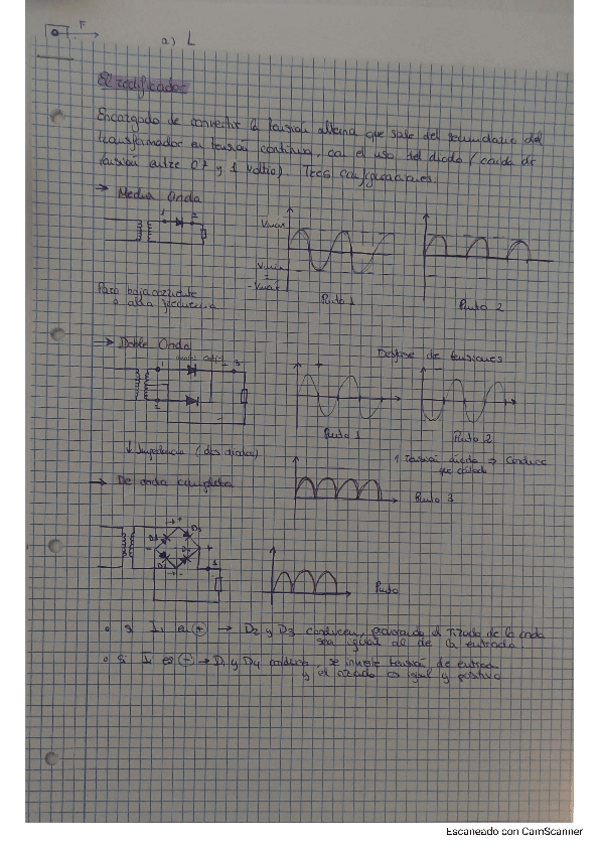 F
a) L
El rectificador
Encargado de convertir la tensión alterna que sale del secundario del
transformador en tensión continua, con el uso del diodo (caída de
tensión entre 0' y 1 Voltio). Tres configuraciones.
→ Media Onda
1 2
Vmax
Vmin
=
-Vmax
Punto 1
Punto 2
Para baja corriente
o alta frecuencia
→ Doble Onda
Desfase de tensiones
1
3
2
Punto 1
Punto 2
↓ Impedancia (dos diodos)
↑ Tensión diodo ⇒ Conduce
→ De onda completa
Punto 3
D3
Punto
• Si I1 es (+) → D2 y D3 conducen, el de la onda
sea igual al de la entrada.
• Si I es (-) → D1 y D4 conducen, se invierte tensión de entrada
y el es igual y positivo
Escaneado con CamScanner